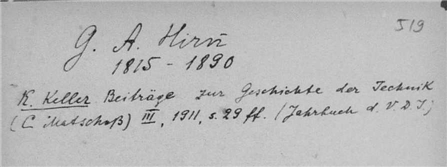 519
G. A. Hirn
1815 - 1890
K. Keller Beiträge zur Geschichte der Technik
(C Matschoß) III, 1911, S. 29 ff. (Jahrbuch d. V.D.I.)